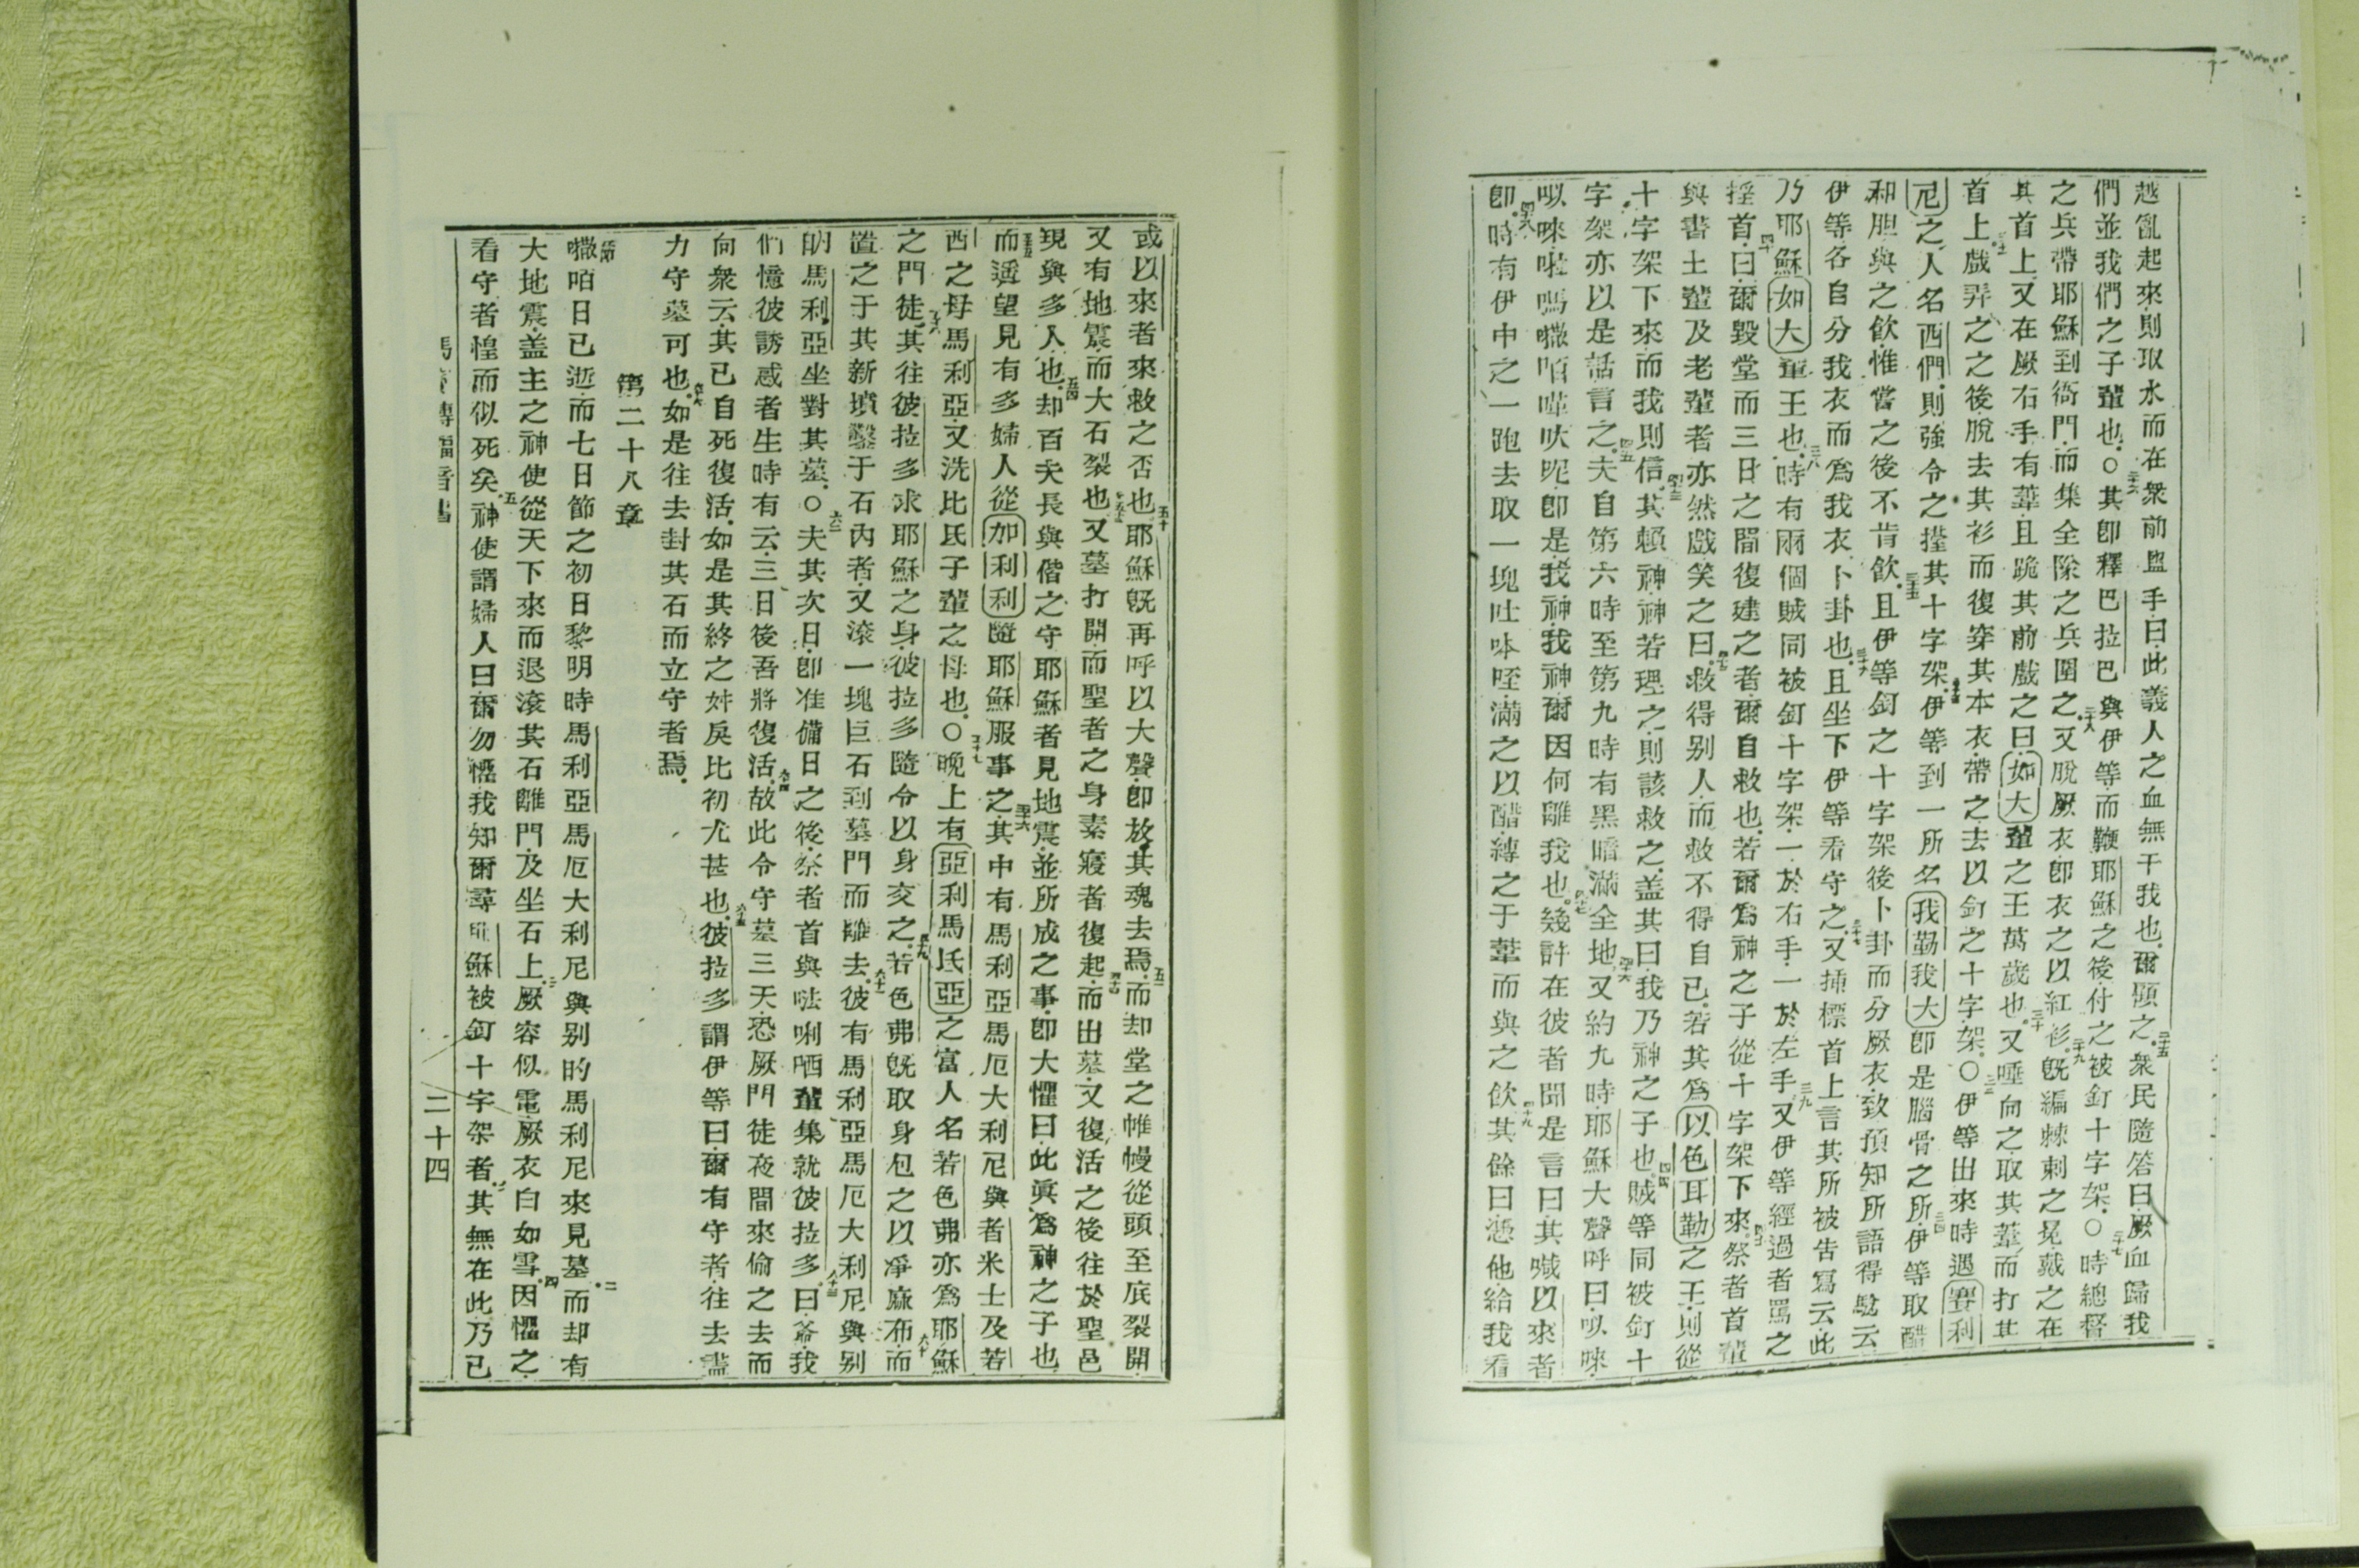 越亂起來則取水而在衆前盥手曰此義人之血無干我也爾顧之衆民隨答曰厥血歸我
們並我們之子輩也○其卽釋巴拉巴與伊等而鞭耶穌之後付之被釘十字架○時總督
之兵帶耶穌到衙門而集全隊之兵圍之又脫厥衣卽衣之以紅衫旣編棘刺之冕戴之在
其首上又在厥右手有葦且跪其前戲之曰如大輩之王萬歲也又唾向之取其葦而打其
首上戲弄之之後脫去其衫而復穿其本衣帶之去以釘之十字架○伊等出來時遇賽利
尼之人名西們則強令之擡其十字架伊等到一所名我勒我大卽是腦骨之所伊等取醋
和胆與之飲惟嘗之後不肯飲且伊等釘之十字架後卜卦而分厥衣致預知所語得騐云
伊等各自分我衣而爲我衣卜卦也且坐下伊等看守之又插標首上言其所被告寫云此
乃耶穌如大輩王也時有兩個賊同被釘十字架一於右手一於左手又伊等經過者罵之
搖首曰爾毀堂而三日之間復建之者爾自救也若爾爲神之子從十字架下來祭者首輩
與書士輩及老輩者亦然戲笑之曰救得別人而救不得自己若其爲以色耳勒之王則從
十字架下來而我則信其賴神神若理之則該救之盖其曰我乃神之子也賊等同被釘十
字架亦以是話言之夫自第六時至第九時有黑暗滿全地又約九時耶穌大聲呼曰㕥唻
㕥唻啦嗎㘔咟嘩呔呢卽是我神我神爾因何離我也幾許在彼者聞是言曰其喊以來者
卽時有伊中之一跑去取一塊吐呠咥滿之以醋縛之于葦而與之飲其餘曰憑他給我看
或以來者來救之否也耶穌旣再呼以大聲卽放其魂去焉而却堂之帷幔從頭至底裂開
又有地震而大石裂也又墓打開而聖者之身素寢者復起而出墓又復活之後往於聖邑
現與多人也却百夫長與偕之守耶穌者見地震並所成之事卽大懼曰此眞爲神之子也
而遥望見有多婦人從加利利隨耶穌服事之其中有馬利亞馬厄大利尼與者米士及若
西之母馬利亞又洗比氐子輩之母也○晚上有亞利馬氐亞之富人名若色弗亦爲耶穌
之門徒其往彼拉多求耶穌之身彼拉多隨令以身交之若色弗旣取身包之以凈麻布而
置之于其新墳鑿于石內者又滾一塊巨石到墓門而離去彼有馬利亞馬厄大利尼與別
的馬利亞坐對其墓○夫其次日卽准備日之後祭者首與㗫唎哂輩集就彼拉多曰爺我
們憶彼誘惑者生時有云三日後吾將復活故此令守墓三天恐厥門徒夜間來偷之去而
向衆云其已自死復活如是其終之奸戾比初尤甚也彼拉多謂伊等曰爾有守者往去盡
力守墓可也如是往去封其石而立守者焉
第二十八章
㘔咟日已逝而七日節之初日黎明時馬利亞馬厄大利尼與別的馬利尼來見墓而却有
大地震盖主之神使從天下來而退滾其石離門及坐石上厥容似電厥衣白如雪因懼之
看守者惶而似死矣神使謂婦人曰爾勿懼我知爾尋耶穌被釘十字架者其無在此乃已
二十四